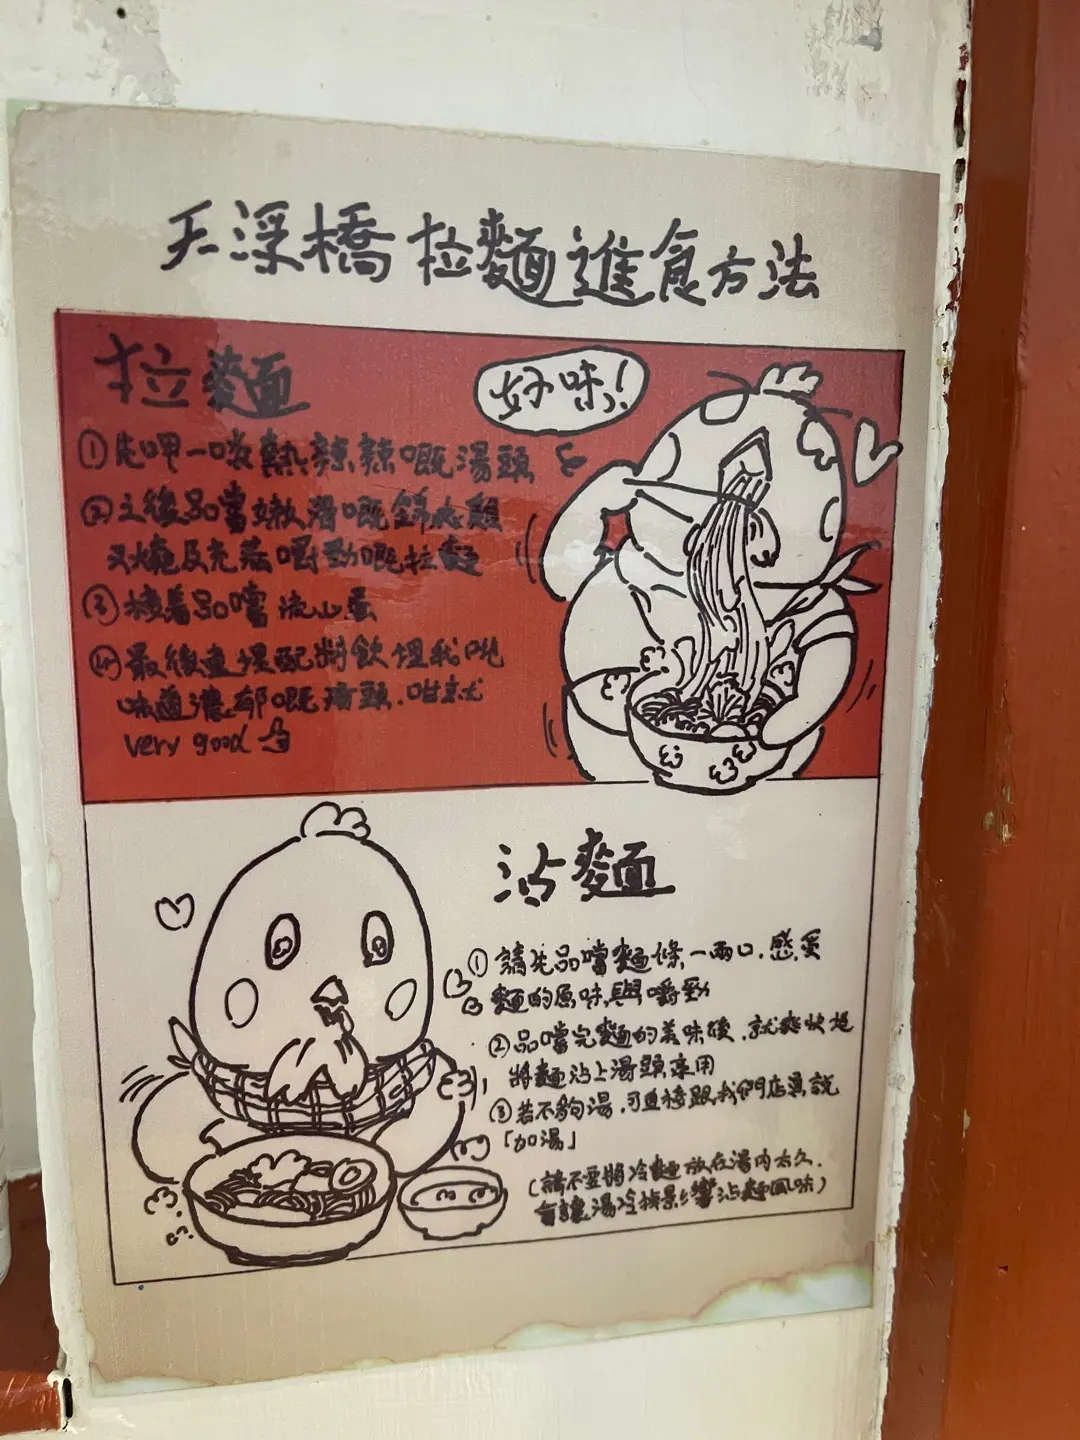 天浮橋拉麵進食方法
拉麵
好味!
①先呷一啖熱辣辣嘅湯頭
②之後品嚐嫩滑嘅雞
叉燒及充滿嚼勁嘅拉麵
③接着品嚐流心蛋
④最後直接 將飲埋我哋
味道濃郁嘅湯頭.咁就
very good
沾麵
①請先品嚐麵條一兩口.感受
麵的原味與嚼勁
②品嚐完麵的美味後.就爽快地
將麵沾上湯頭享用
③若不夠湯.可直接跟我們店員說
「加湯」
(請不要將冷麵放在湯內太久.
會讓湯冷掉影響沾麵風味)